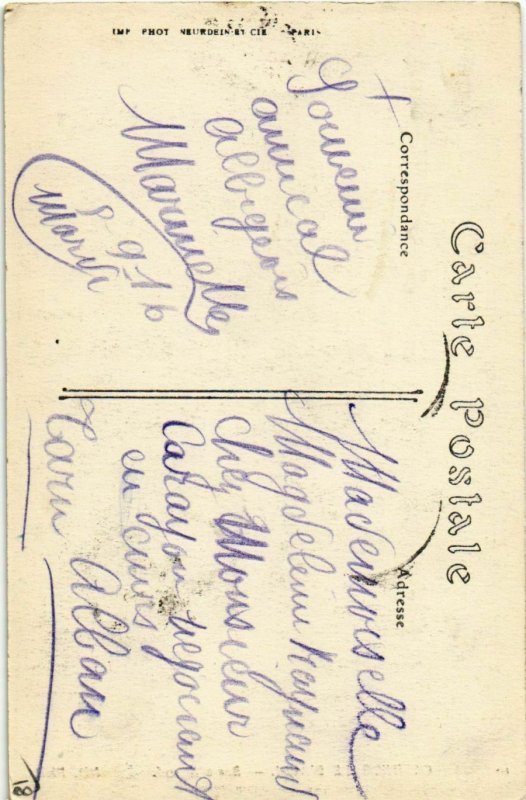 Carte Postale
Correspondance
Adresse
Souvenir
amical
albigeois
Marinette
8-9-16
Mademoiselle
Magdeleine Raynaud
chez Monsieur
Carayon negociant
en cuirs
Alban
Tarn
IMP PHOT NEURDEIN ET CIE PARIS
18